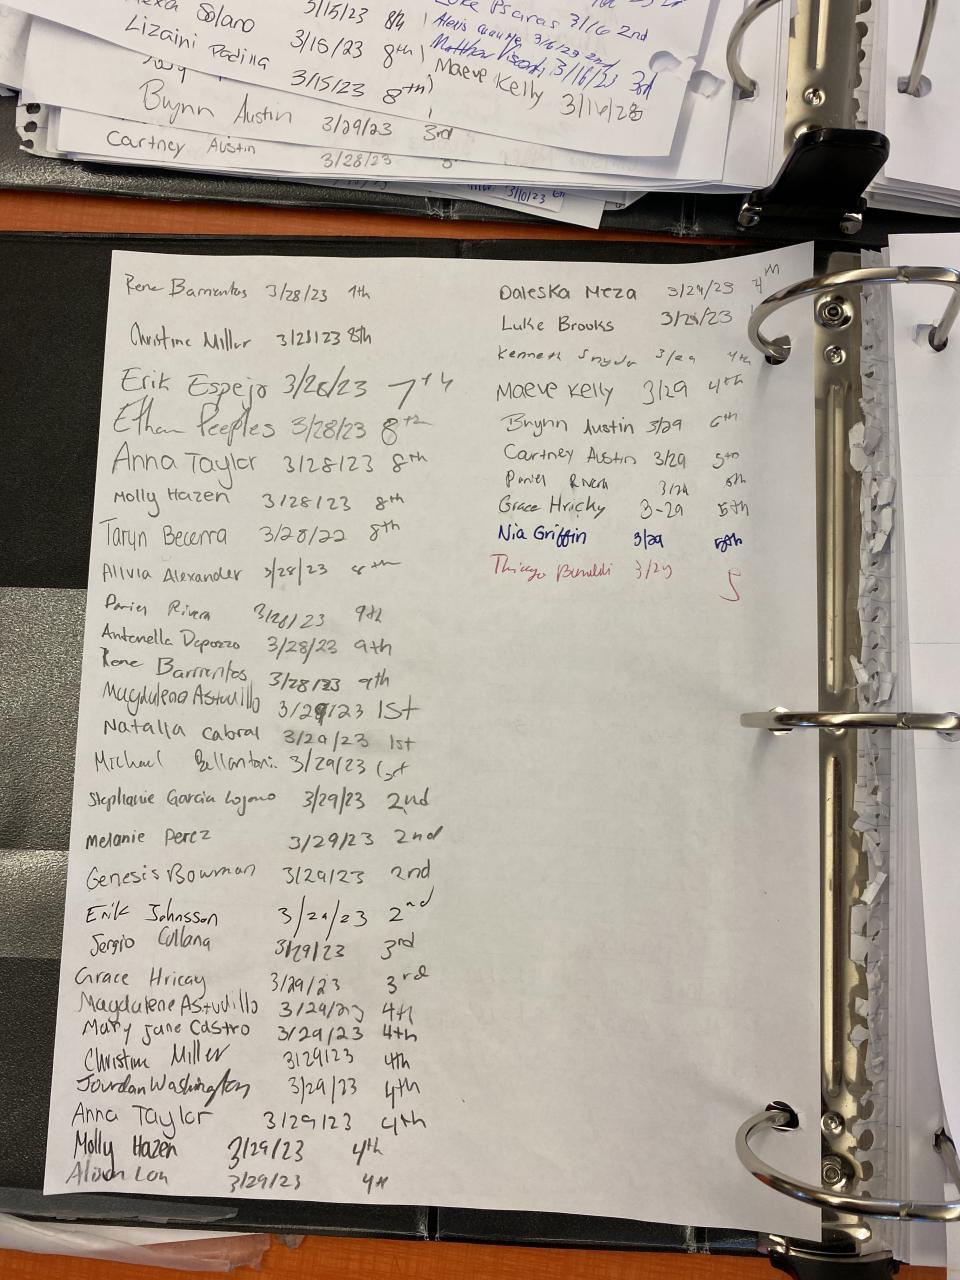 Solano 3/15/23 8th
Lizaini Padilla 3/15/23 8th
3/15/23 8th
Luke Psaras 3/16 2nd
Alexis 3/6/23 2nd
Matthew Visconti 3/16/23 3rd
Maeve Kelly 3/16/23
Brynn Austin 3/29/23 3rd
Cartney Austin 3/28/23
3/10/23
Rene Barrientos 3/28/23 9th
Christine Miller 3/28/23 8th
Erik Espejo 3/28/23 7th
Ethan Peeples 3/28/23 8th
Anna Taylor 3/28/23 8th
Molly Hazen 3/28/23 8th
Taryn Becerra 3/28/22 8th
Alivia Alexander 3/28/23 8th
Daniel Rivera 3/28/23 9th
Antonella Dapozzo 3/28/23 9th
Rene Barrientos 3/28/23 9th
Magdalena Astudillo 3/29/23 1st
Natalia Cabral 3/29/23 1st
Michael Bellantoni 3/29/23 1st
Stephanie Garcia Lozano 3/29/23 2nd
Melanie Perez 3/29/23 2nd
Genesis Bowman 3/29/23 2nd
Erik Johnsson 3/29/23 2nd
Sergio Collana 3/29/23 3rd
Grace Hricay 3/29/23 3rd
Magdalene Astudillo 3/29/23 4th
Mary Jane Castro 3/29/23 4th
Christine Miller 3/29/23 4th
Jourdan Washington 3/29/23 4th
Anna Taylor 3/29/23 4th
Molly Hazen 3/29/23 4th
Alison Loh 3/29/23 4th
Daleska Meza 3/29/23 4th
Luke Brooks 3/29/23
Kenneth Snyder 3/29 4th
Maeve Kelly 3/29 4th
Brynn Austin 3/29 6th
Cartney Austin 3/29 5th
Daniel Rivera 3/29 5th
Grace Hricky 3-29 5th
Nia Griffin 3/29 5th
Thiago 3/29 5